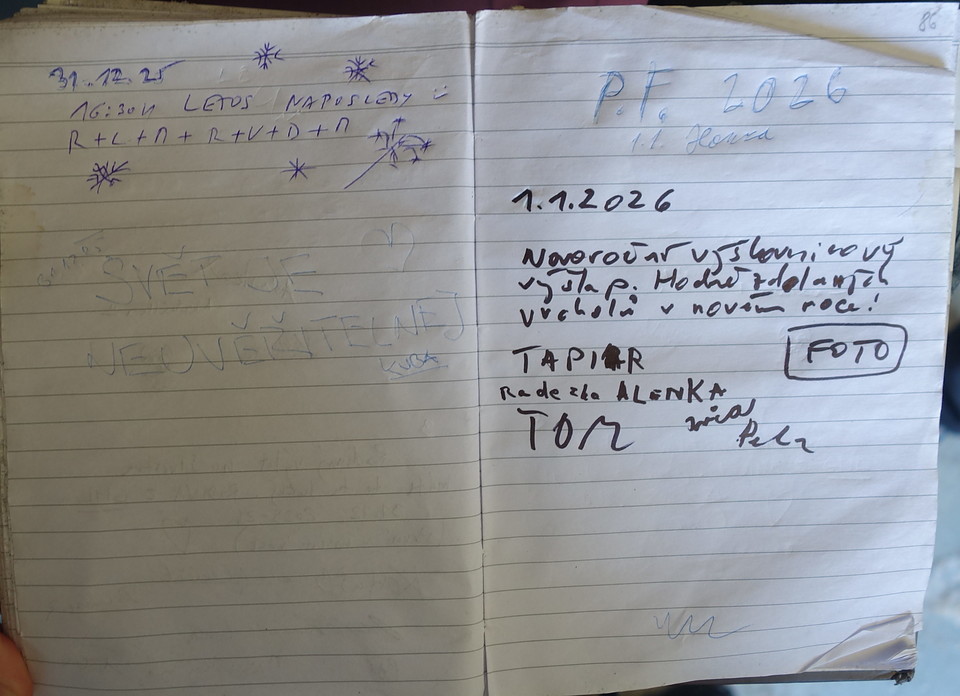 31.12.25
16:30H LETOS NAPOSLEDY :-
R+L+M+R+V+D+M
SVĚT JE
NEOVĚŘITELNEJ
KUBA
86
P.F. 2026
1.1. Honza
1.1.2026
Novoroční výškovnicový
výšlap. Hodně zdolaných
vrcholů v novém roce!
TAPIR
FOTO
Radezka ALENKA
TOM
Péťa